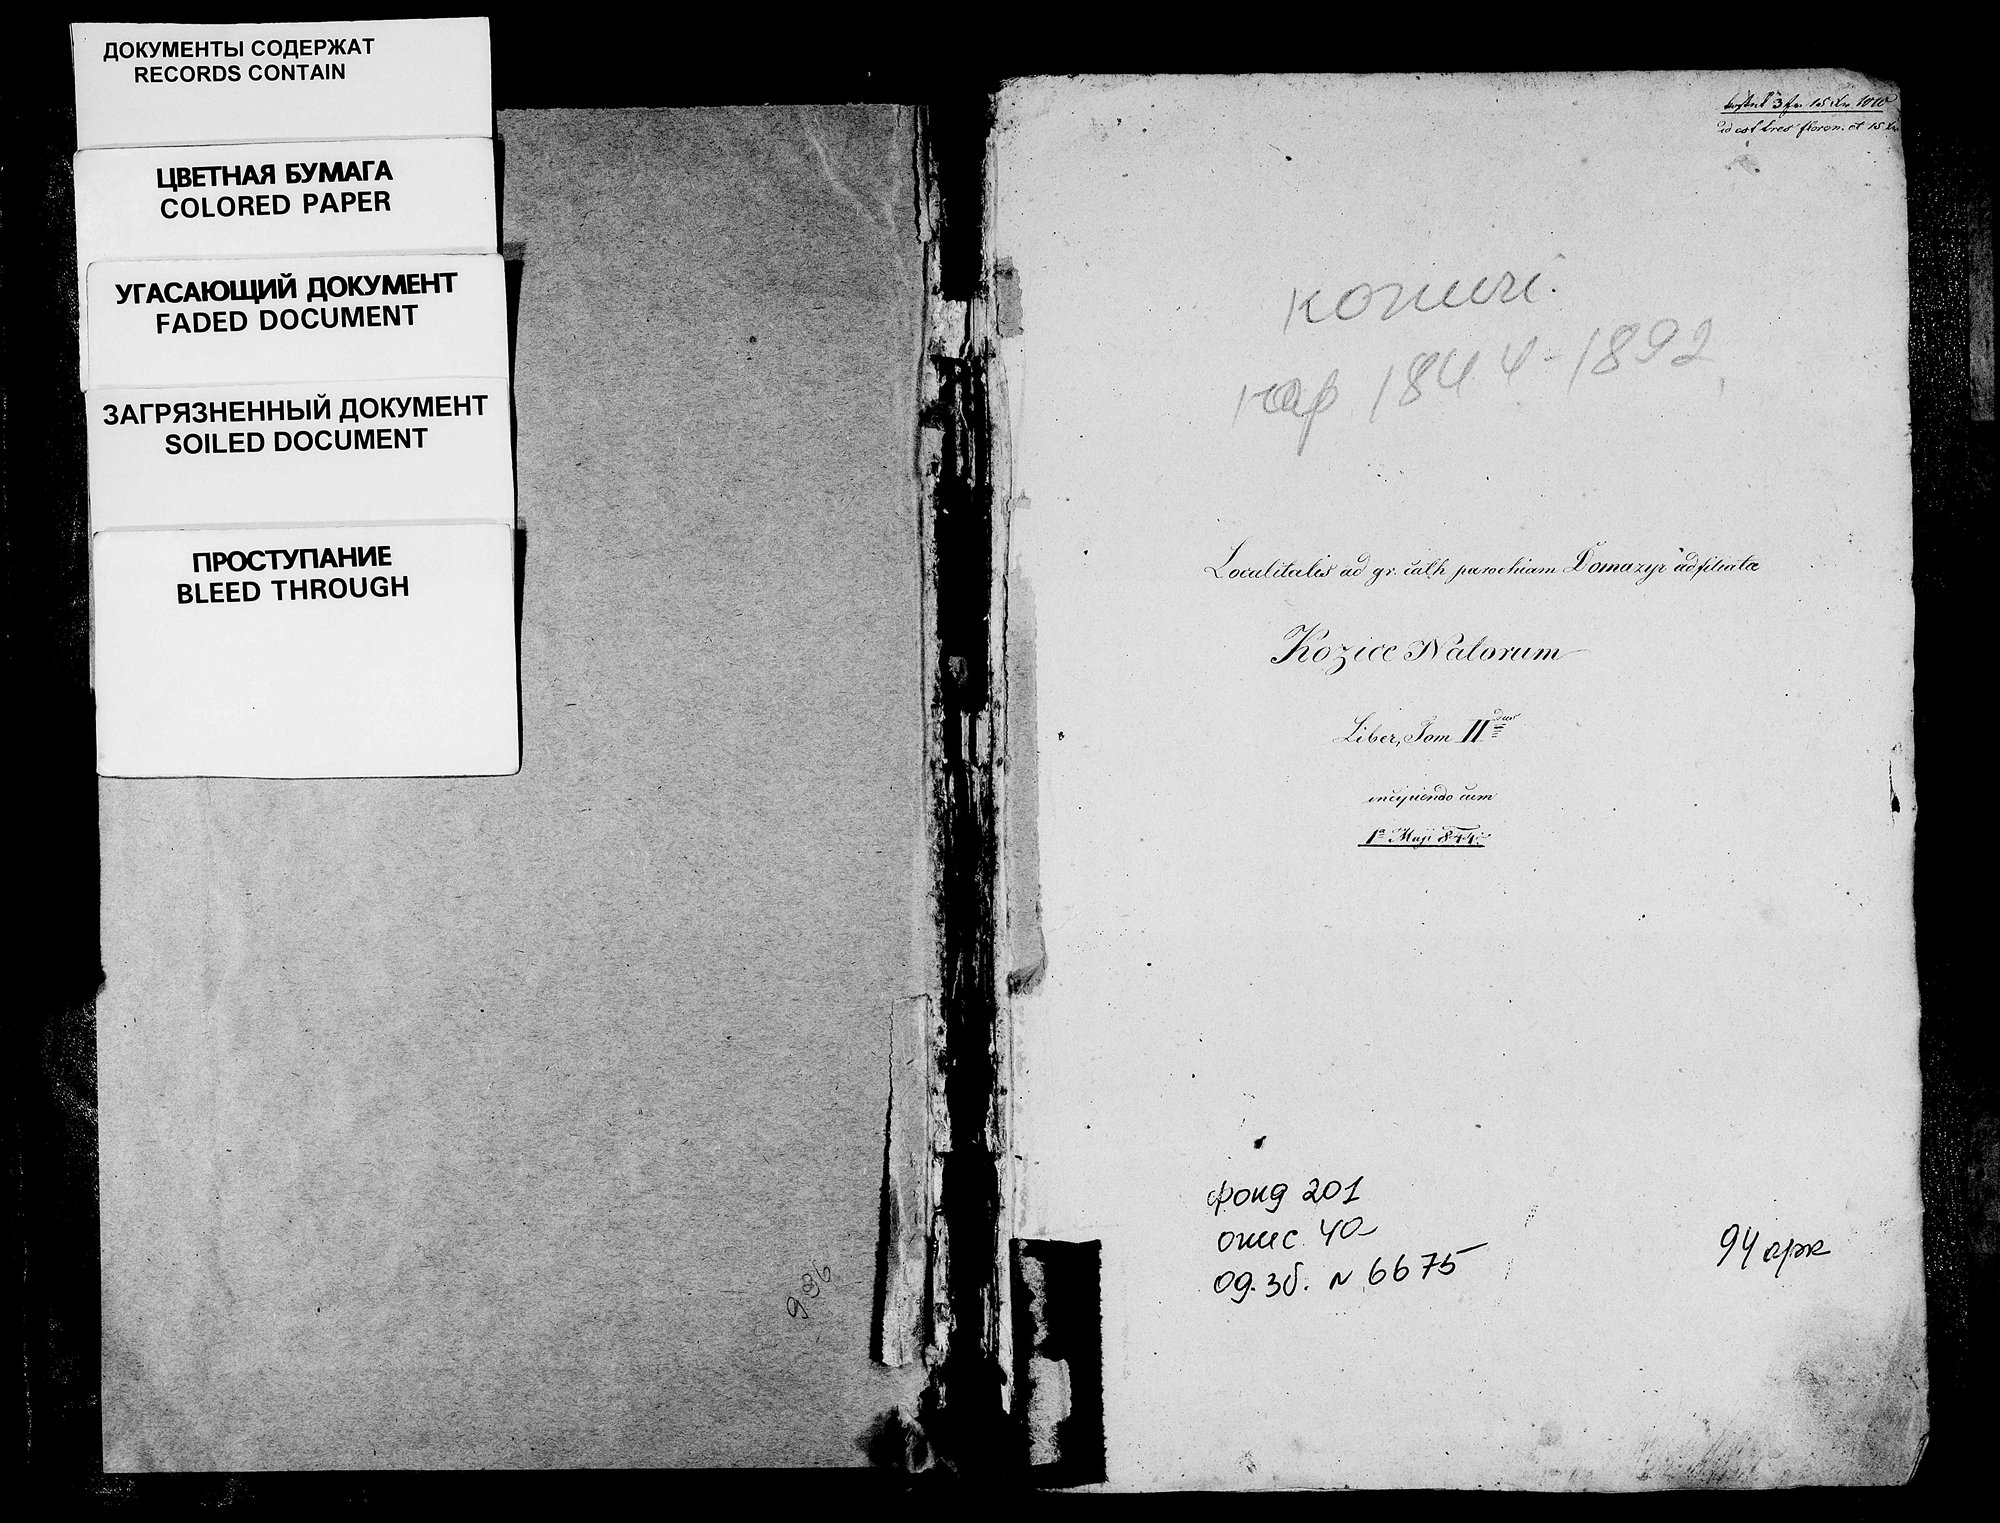 ДОКУМЕНТЫ СОДЕРЖАТ
RECORDS CONTAIN
ЦВЕТНАЯ БУМАГА
COLORED PAPER
УГАСАЮЩИЙ ДОКУМЕНТ
FADED DOCUMENT
ЗАГРЯЗНЕННЫЙ ДОКУМЕНТ
SOILED DOCUMENT
ПРОСТУПАНИЕ
BLEED THROUGH
936
3 fr. 15 Xr.
id est tres floren. et 15 Xr.
1844-1892
Localitatis ad gr. cath parochiam Domazyr adfiliata
Kozice Natorum
Liber, Tom II dus
incipiendo cum
1a Maji 844.
фонд 201
опис 40
од. зб. N 6675
94 арк